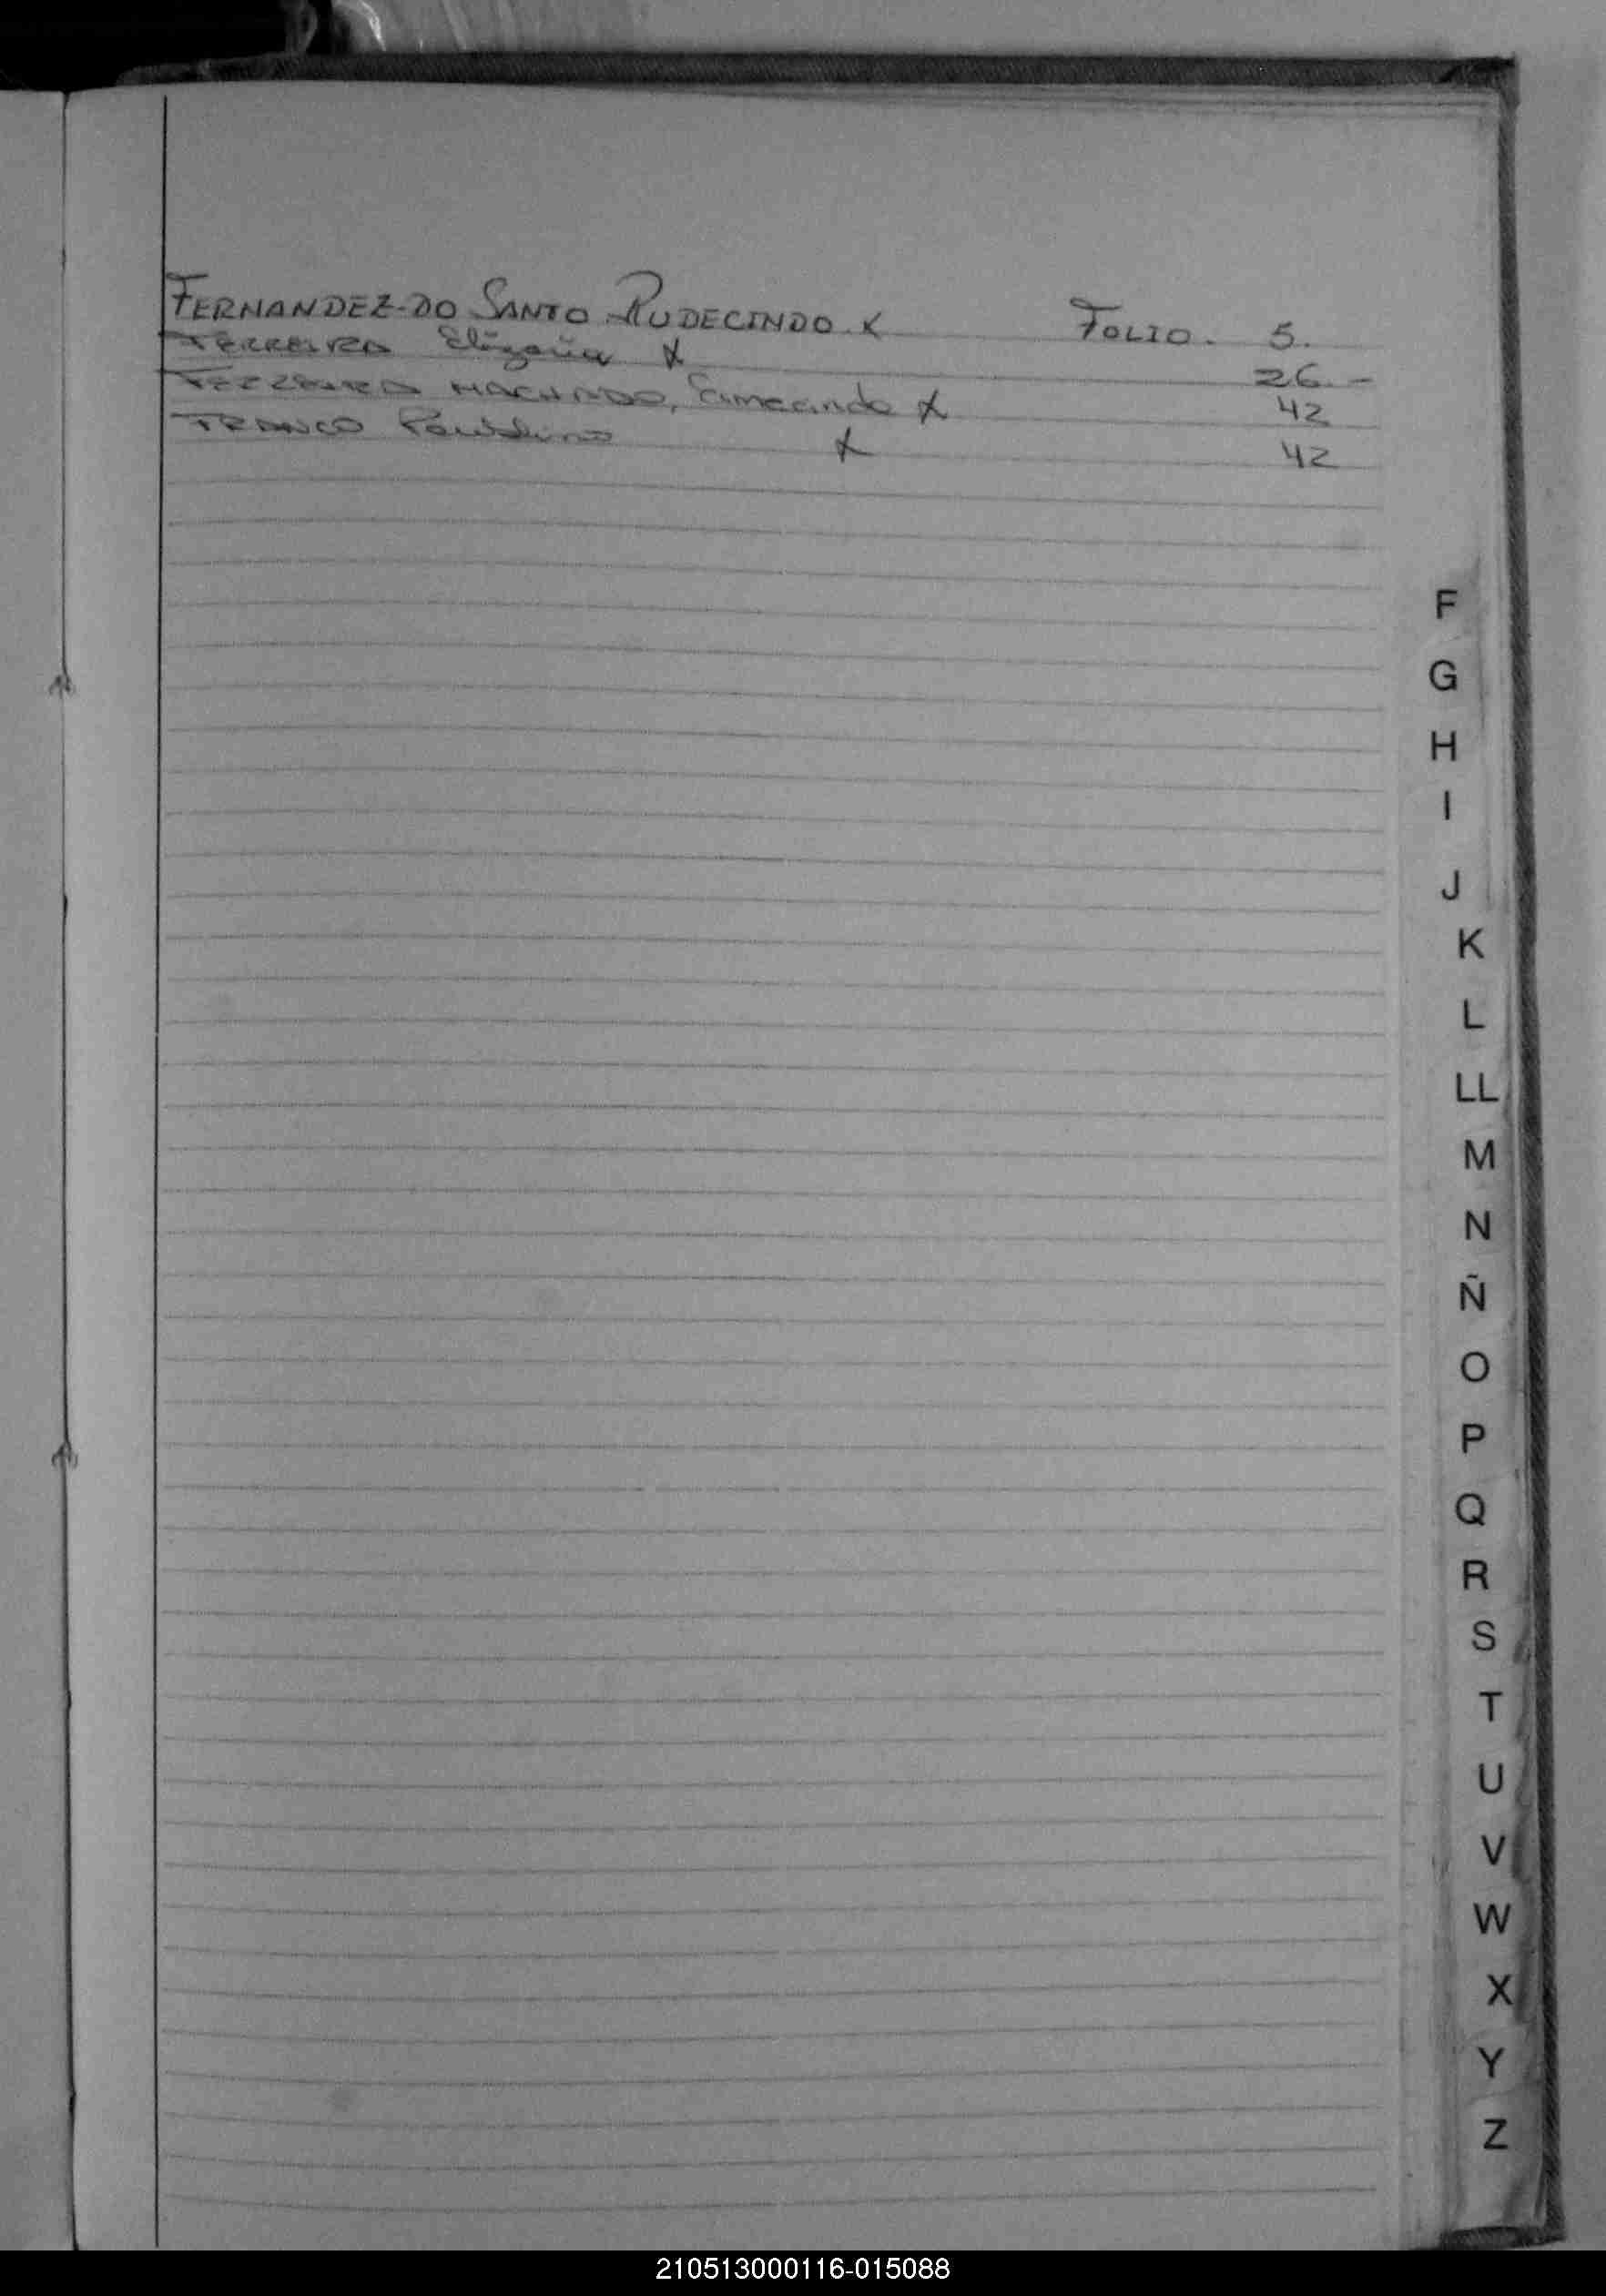 FERNANDEZ-DO SANTO RUDECINDO. X FOLIO. 5.
FERREIRA X 26.-
FERREIRA MACHADO, X 42
FRANCO Paublino X 42
F
G
H
I
J
K
L
LL
M
N
Ñ
O
P
Q
R
S
T
U
V
W
X
Y
Z
210513000116-015088